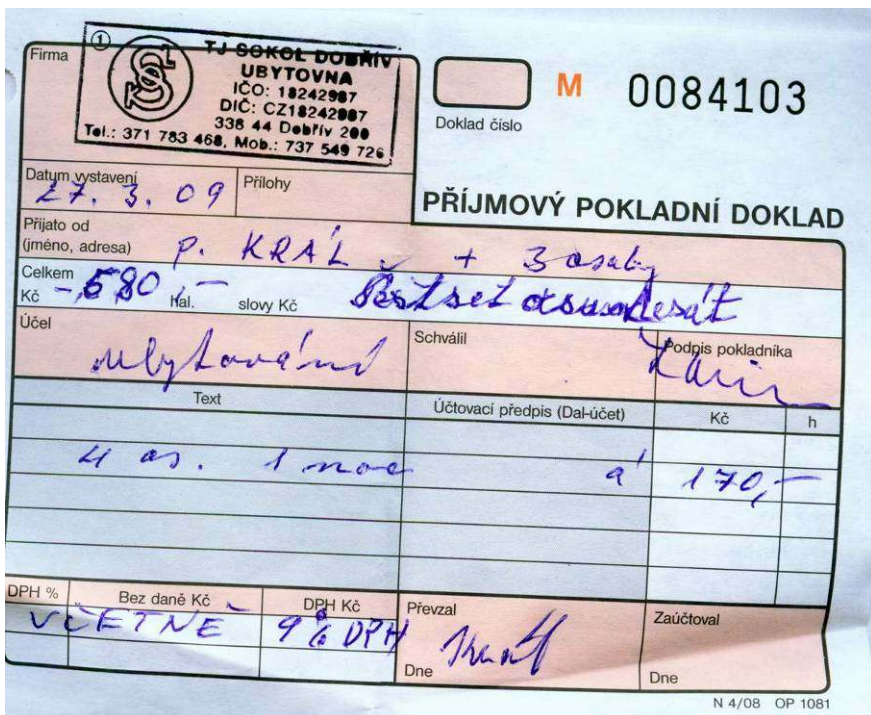 Firma
①
TJ SOKOL DOBŘÍV
UBYTOVNA
IČO: 18242987
DIČ: CZ18242987
338 44 Dobřív 200
Tel.: 371 783 468, Mob.: 737 549 726
M 0084103
Doklad číslo
Datum vystavení
27. 3. 09
Přílohy
PŘÍJMOVÝ POKLADNÍ DOKLAD
Přijato od
(jméno, adresa) P. KRÁL + 3 osoby
Celkem
Kč -,680,- hal. slovy Kč Šestset osumdesát
Účel
ubytování
Schválil
Podpis pokladníka
Text
Účtovací předpis (Dal-účet)
Kč
h
4 os. 1 noc á 170,-
DPH %
Bez daně Kč
DPH Kč
VČETNĚ 9% DPH
Převzal
Dne
Zaúčtoval
Dne
N 4/08 OP 1081